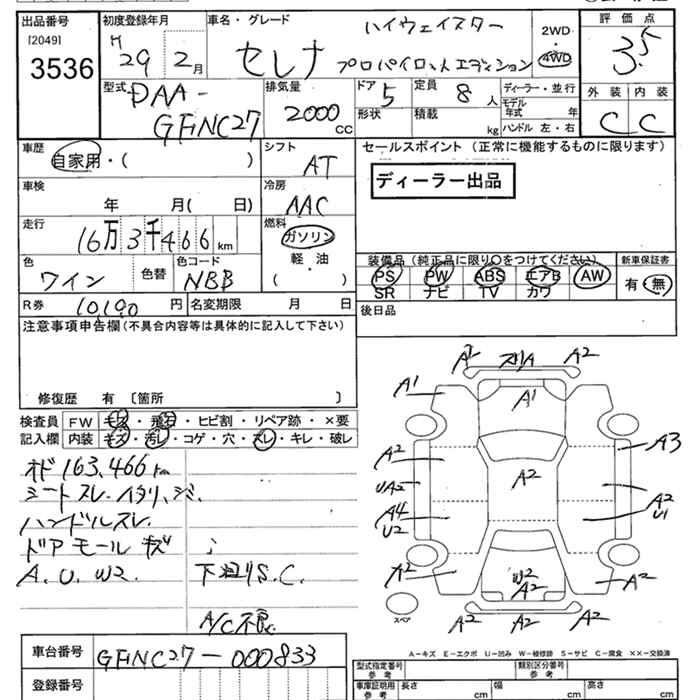 出品番号
[2049]
3536
初度登録年月
H29年2月
車名・グレード
ハイウェイスター
セレナ
プロパイロットエディション
2WD
・
4WD
評価点
3.5
型式
DAA-
GFNC27
排気量
2000
CC
ドア
5
定員
8人
形状
積載
kg
ディーラー・並行
モデル年式 年
ハンドル 左・右
外装
内装
C
C
車歴
自家用・( )
シフト
AT
車検
年 月( 日)
冷房
AAC
走行
16万3千466km
燃料
ガソリン
軽・油
( )
色
ワイン
色替
色コード
NBB
R券
10,190円
名変期限 月 日
セールスポイント (正常に機能するものに限ります)
ディーラー出品
装備品 (純正品に限り○をつけてください)
PS PW ABS エアB AW
SR ナビ TV カワ
新車保証書
有・無
後日品
注意事項申告欄(不具合内容等は具体的に記入して下さい)
修復歴 有 〔箇所 〕
検査員
記入欄
FW キズ・飛石・ヒビ割・リペア跡・×要
内装 キズ・汚レ・コゲ・穴・スレ・キレ・破レ
オド163,466km
シートスレ.ヘタリ、シミ、
ハンドルスレ.
ドアモールキズ
A.U.W2.
下廻りS.C.
A/C不良
A1 スリA A2
A1
A1
A2
A3
UA2
A2
A4
U2
A2
U1
A2
W2
A2
A2
A2 A2 A2
スペア
A-キズ E-エクボ U-凹み W-補修跡 S-サビ C-腐食 ××-交換済
車台番号
GFNC27-000833
登録番号
型式指定番号
参考
類別区分番号
参考
車庫証明用
参考
長さ cm
幅 cm
高さ cm